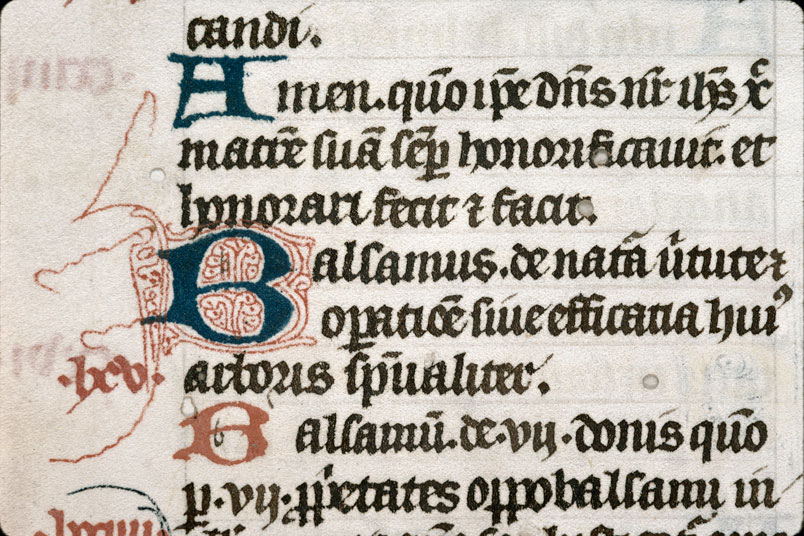 candi.
Amen. quo͞ ip͞e dn͞s nr͞ ih͞s xc
matre͞ sua͞ sem͞p honorificauit. et
honorari fecit ⁊ facit.
Balsamus. de nata͞ u͛tute ⁊
op͞atioe͞ siue efficatia huiꝰ
·lxv· arboris sp͞ualiter.
Balsamu͞. de · vij · donis quo͞
p͞ · vij · pp͛etates oppobalsami in